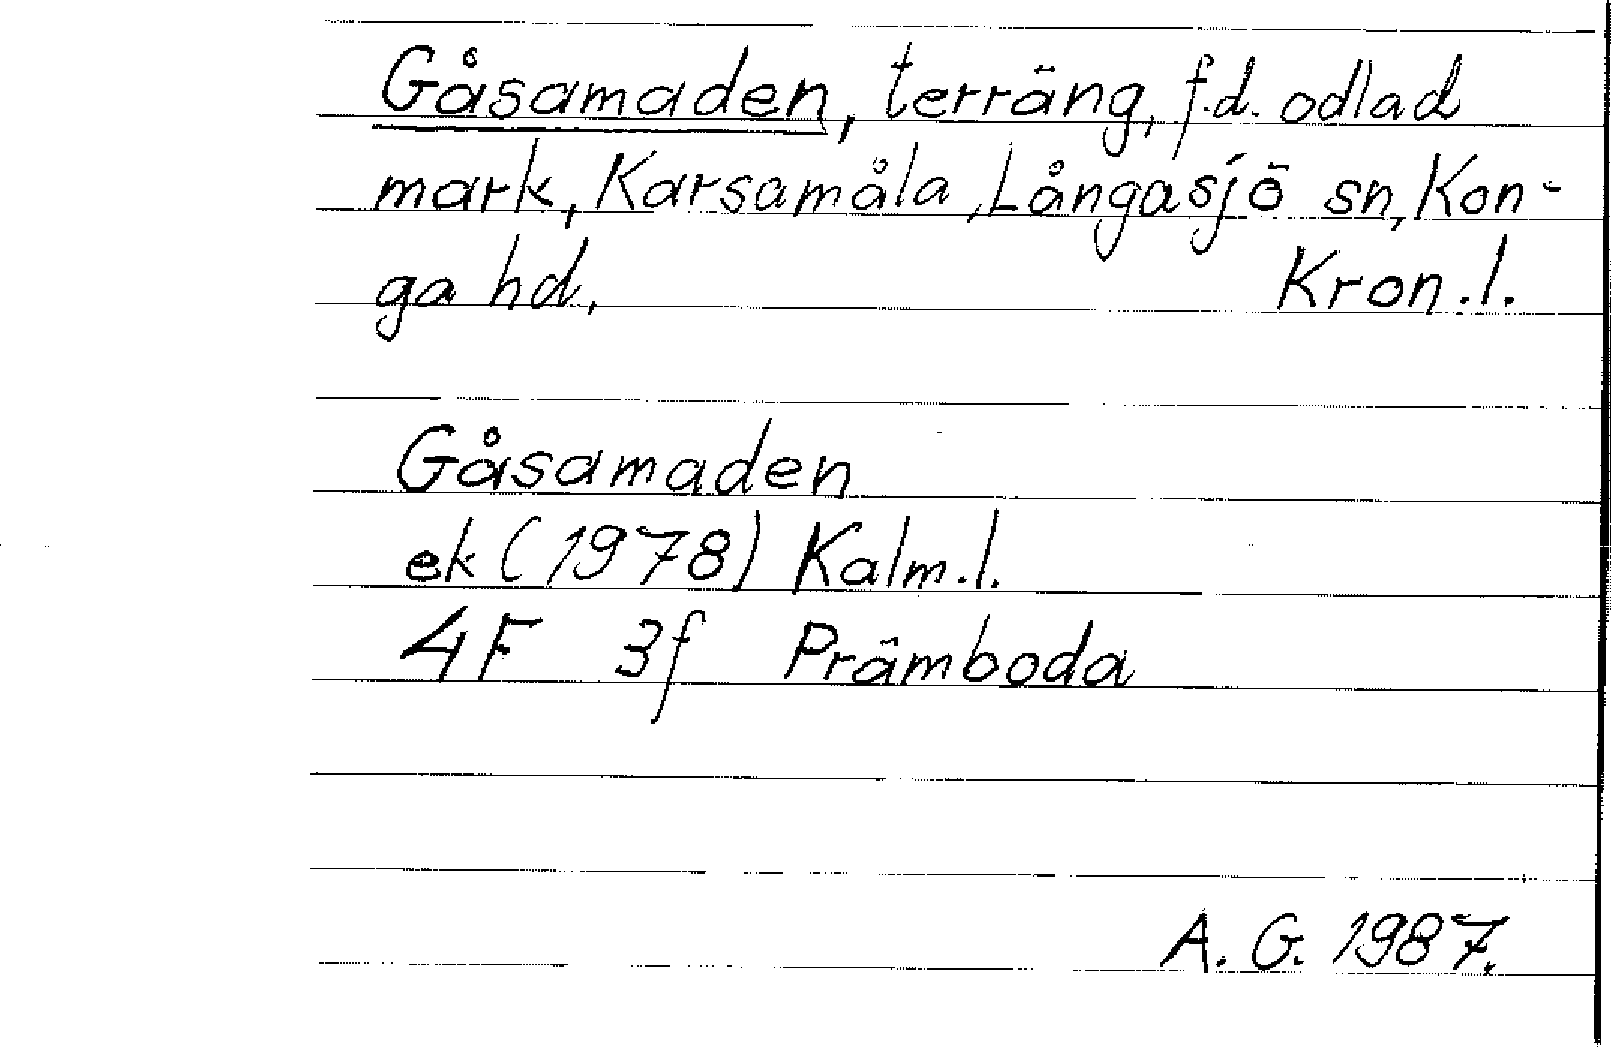 Gåsamaden, terräng, f.d. odlad
mark, Karsamåla, Långasjö sn, Kon-
ga hd, Kron.l.
Gåsamaden
ek (1978) Kalm.l.
4F 3f Främboda
A. G. 1987.